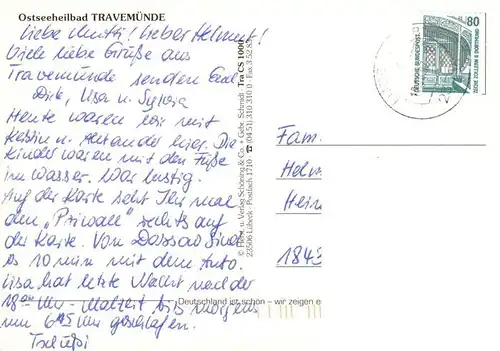 Ostseeheilbad TRAVEMÜNDE
Liebe Mutti! Lieber Helmut!
Viele liebe Grüße aus
Travemünde senden Euch
Dirk, Lisa u. Sylvia
Heute waren wir mit
Kerstin u. Alexander hier. Die
Kinder waren mit den Füße
im Wasser. War lustig.
Auf der Karte seht Ihr mal
den „Priwall" rechts auf
der Karte. Von Dassow sind
es 10 min mit dem Auto.
Lisa hat letzte Nacht nach der
18⁰⁰ Uhr - Malzeit bis morgens
um 6⁴⁵ Uhr geschlafen.
Tschüßi
Deutschland ist schön – wir zeigen e
© Herst. u. Verlag Schöning & Co. · Gebr. Schmidt · Tra CS 1000
23506 Lübeck · Postfach 1710 · (0451) 310 310 · Fax 35285
80
DEUTSCHE BUNDESPOST
ZECHE ZOLLERN II, DORTMUND
Fam.
Helm
Hein
1843